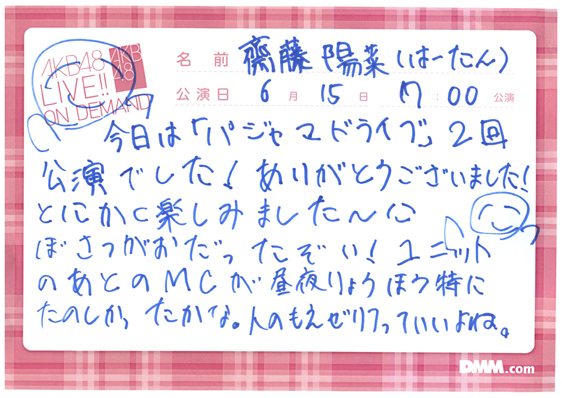 AKB48
LIVE!!
ON DEMAND
AKB
48
名前 齋藤陽菜(はーたん)
公演日 6月15日 17:00 公演
今日は「パジャマドライブ」2回
公演でした! ありがとうございました!
とにかく楽しみました〜
ぼさつがおだったぞい! ユニット
のあとのMCが昼夜りょうほう特に
たのしかったかな。人のもえぜりフっていいよね。
DMM.com